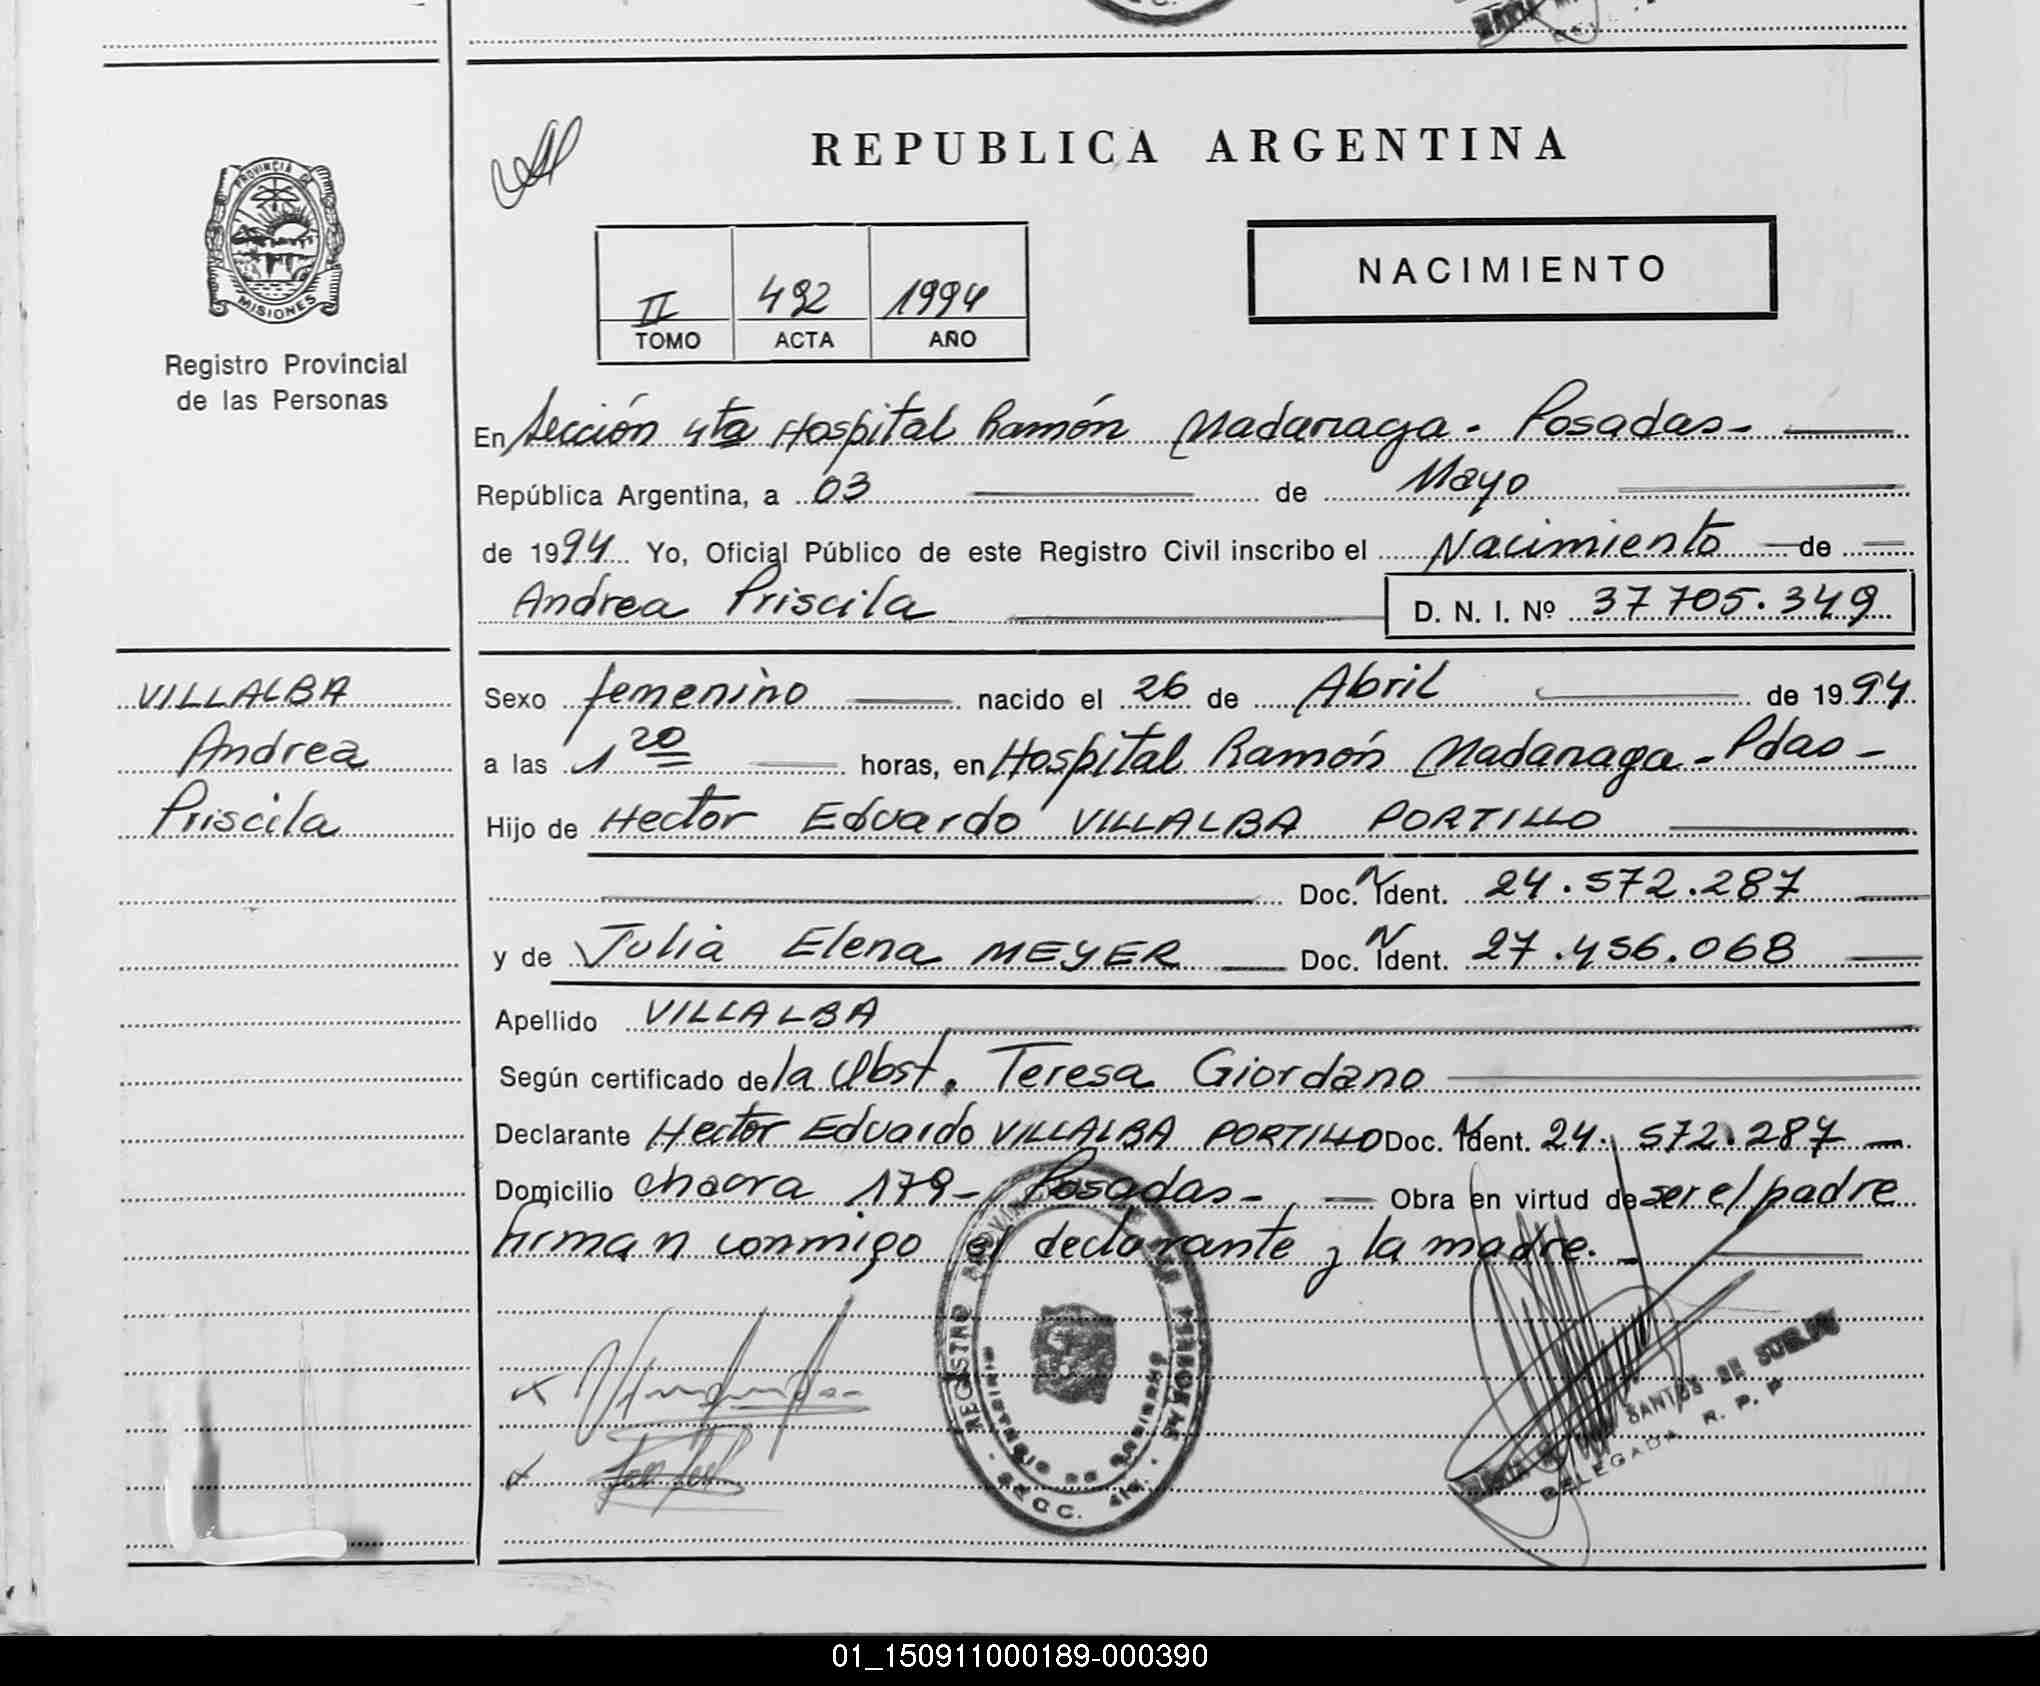 REPUBLICA ARGENTINA
PROVINCIA DE
MISIONES
Registro Provincial
de las Personas
II 492 1994
TOMO ACTA AÑO
NACIMIENTO
En Sección 4ta Hospital Ramón Madariaga - Posadas -
República Argentina, a 03 de Mayo
de 1994 Yo, Oficial Público de este Registro Civil inscribo el Nacimiento de
Andrea Priscila D. N. I. Nº 37705.349
VILLALBA
Andrea
Priscila
Sexo femenino nacido el 26 de Abril de 1994
a las 1 20 horas, en Hospital Ramón Madariaga - Pdas -
Hijo de Hector Eduardo VILLALBA PORTILLO
Doc. N Ident. 24.572.287
y de Julia Elena MEYER Doc. N Ident. 27.456.068
Apellido VILLALBA
Según certificado de la Obst. Teresa Giordano
Declarante Hector Eduardo VILLALBA PORTILLO Doc. N Ident. 24.572.287
Domicilio chacra 179 - Posadas - Obra en virtud de ser el padre
firman conmigo el declarante y la madre. -
REGISTRO PROVINCIAL DE LAS PERSONAS
SANTOS DE
DELEGADA R. P. P.
01_150911000189-000390